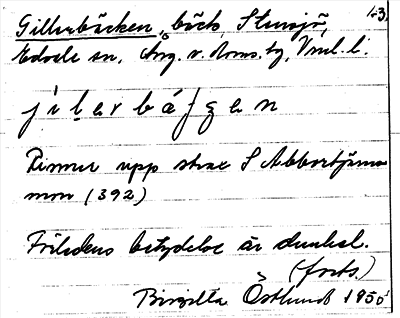 1-3
Gillerbäcken, bäck, Stensjö,
Edsele sn, Ång. v. Doms. tg, Vnl. l.
j i l e r b ä ʃ g e n
Rinner upp strax S Abborrtjärns-
mon (392)
Förledens betydelse är dunkel.
(forts.)
Birgitta Östlund 1950